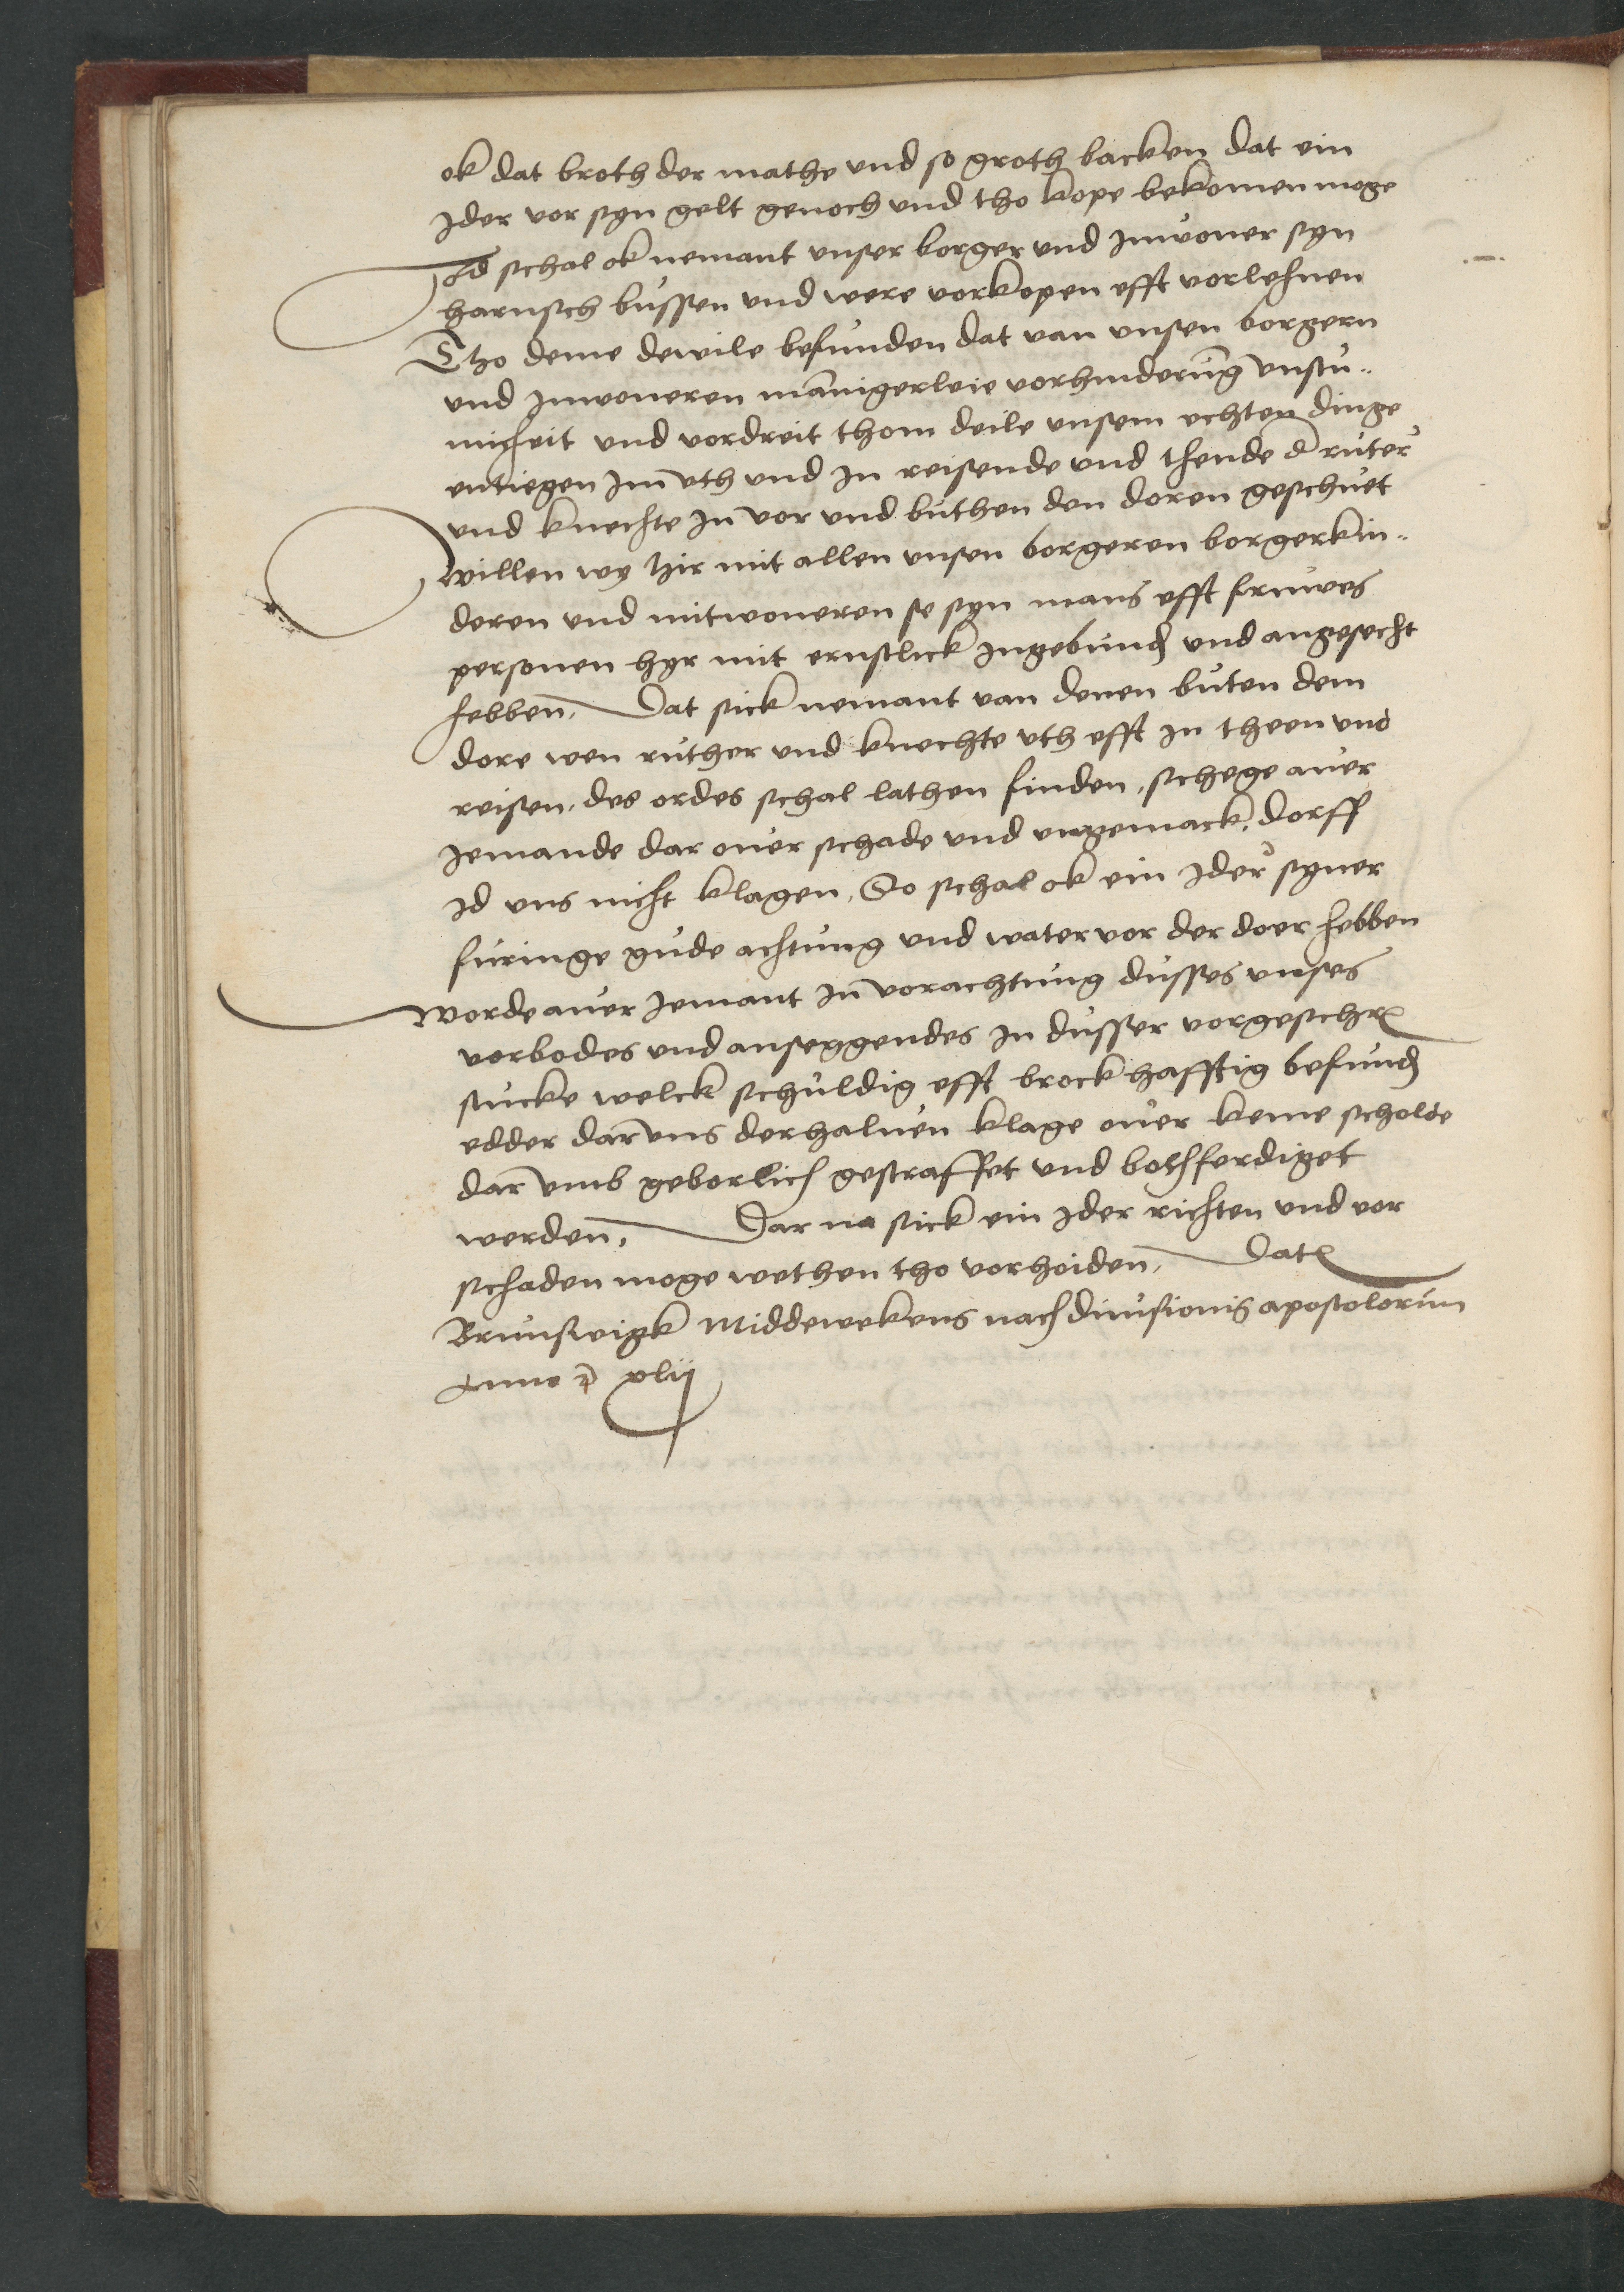 ok dat broth der mathe vnd so groth backen dat ein
Jder vor syn gelt genoch vnd tho kope bekomen moge
Id schal ok nemant vnser borger vnd Inwoner syn
harnsch bussen vnd were vorkopen efft vorlehnen
Tho deme dewile befunden dat van vnsen borgern
vnd Inwoneren mannigerleie vorhinderung vnstu-
micheit vnd vordreit thom deile vnsem echten dinge
entiegen Im vth vnd In reisende vnd thende der ruter
vnd knechte In vor vnd buthen den doren geschuet
willen wy hir mit allen vnsen borgeren borgerkin-
deren vnd mitwoneren se syn mans efft fruwes
personen hyr mit ernstlick Ingebunden vnd angesecht
hebben, Dat sick nemant van denen buten dem
dore wen ruther vnd knechte vth efft In theen vnd
reisen, des ordes schal lathen finden, schege auer
Jemande dar ouer schade vnd vngemack, dorff
Id vns nicht klagen, So schal ok ein Jder syner
furinge gude achtung vnd water vor der doer hebben
Worde auer Jemant In vorachtung dusses vnses
vorbodes vnd anseggendes In dusser vorgeschr
stucke welck schuldig efft brock hafftig befunden
edder dar vns derhaluen klage ouer keme scholde
dar vmb geborlich gestraffet vnd bothferdiget
werden, Dar na sick ein Jder richten vnd vor
schaden moge wethen tho vorhoiden, Dat
Brunswigk Middewekens nach diuisionis apostolorum
Anno xlij